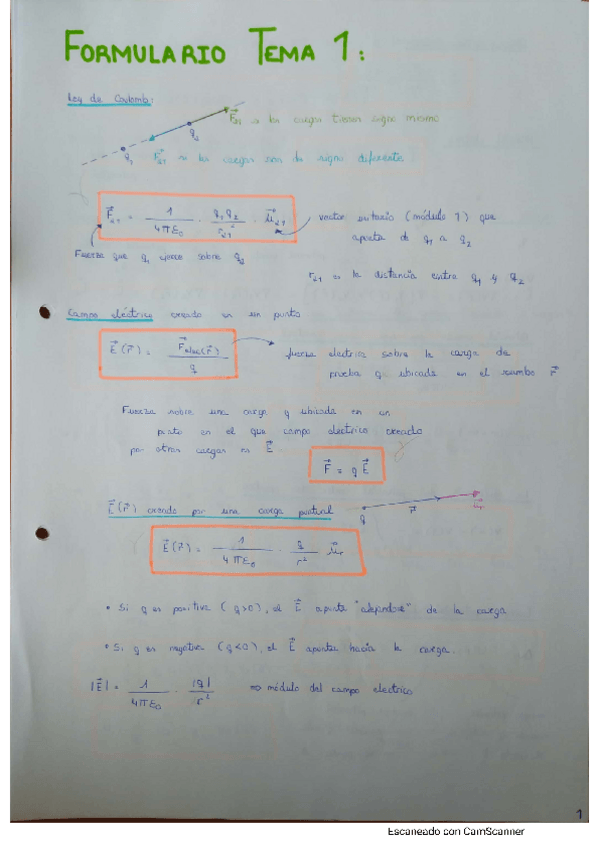 FORMULARIO TEMA 1:
Ley de Coulomb:
F⃗₂₁ si las cargas tienen signo mismo
q₂
q₁ F⃗₂₁ si las cargas son de signo diferente
F⃗₂₁ = 1/(4πε₀) · q₁q₂/r₂₁² · u⃗₂₁
vector unitario (módulo 1) que
apunta de q₁ a q₂
Fuerza que q₁ ejerce sobre q₂
r₂₁ = la distancia entre q₁ y q₂
Campo eléctrico creado en un punto
E⃗(r⃗) = F⃗elec(r⃗)/q
fuerza electrica sobre la carga de
prueba q ubicada en el r⃗
Fuerza sobre una carga q ubicada en un
punto en el que campo electrico creado
por otras cargas es E⃗
F⃗ = q E⃗
E⃗(r⃗) creado por una carga puntual
q r⃗ u⃗r
E⃗(r⃗) = 1/(4πε₀) · q/r² u⃗r
• Si q es positiva (q>0), el E⃗ apunta "alejandose" de la carga
• Si q es negativa (q<0), el E⃗ apunta hacia la carga.
|E⃗| = 1/(4πε₀) · |q|/r² ⇒ módulo del campo electrico
1
Escaneado con CamScanner